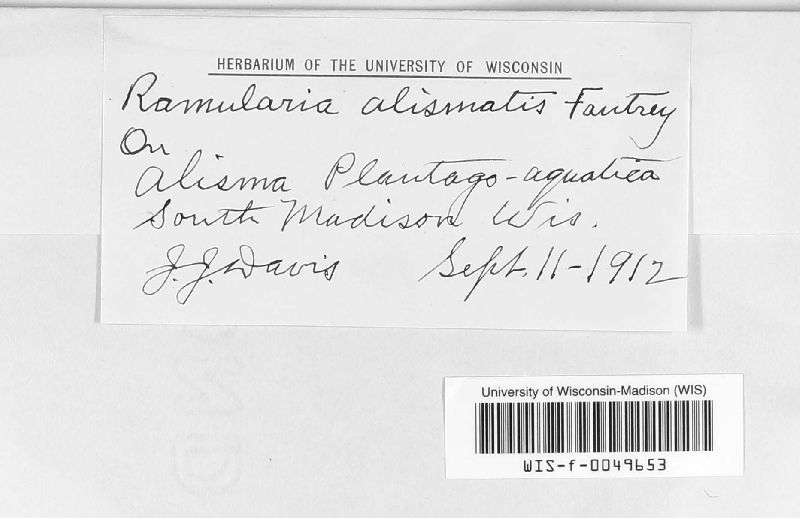 HERBARIUM OF THE UNIVERSITY OF WISCONSIN
Ramularia alismatis Fautrey
On
Alisma Plantago-aquatica
South Madison Wis.
J.J. Davis Sept. 11-1912
University of Wisconsin-Madison (WIS)
WIS-f-0049653